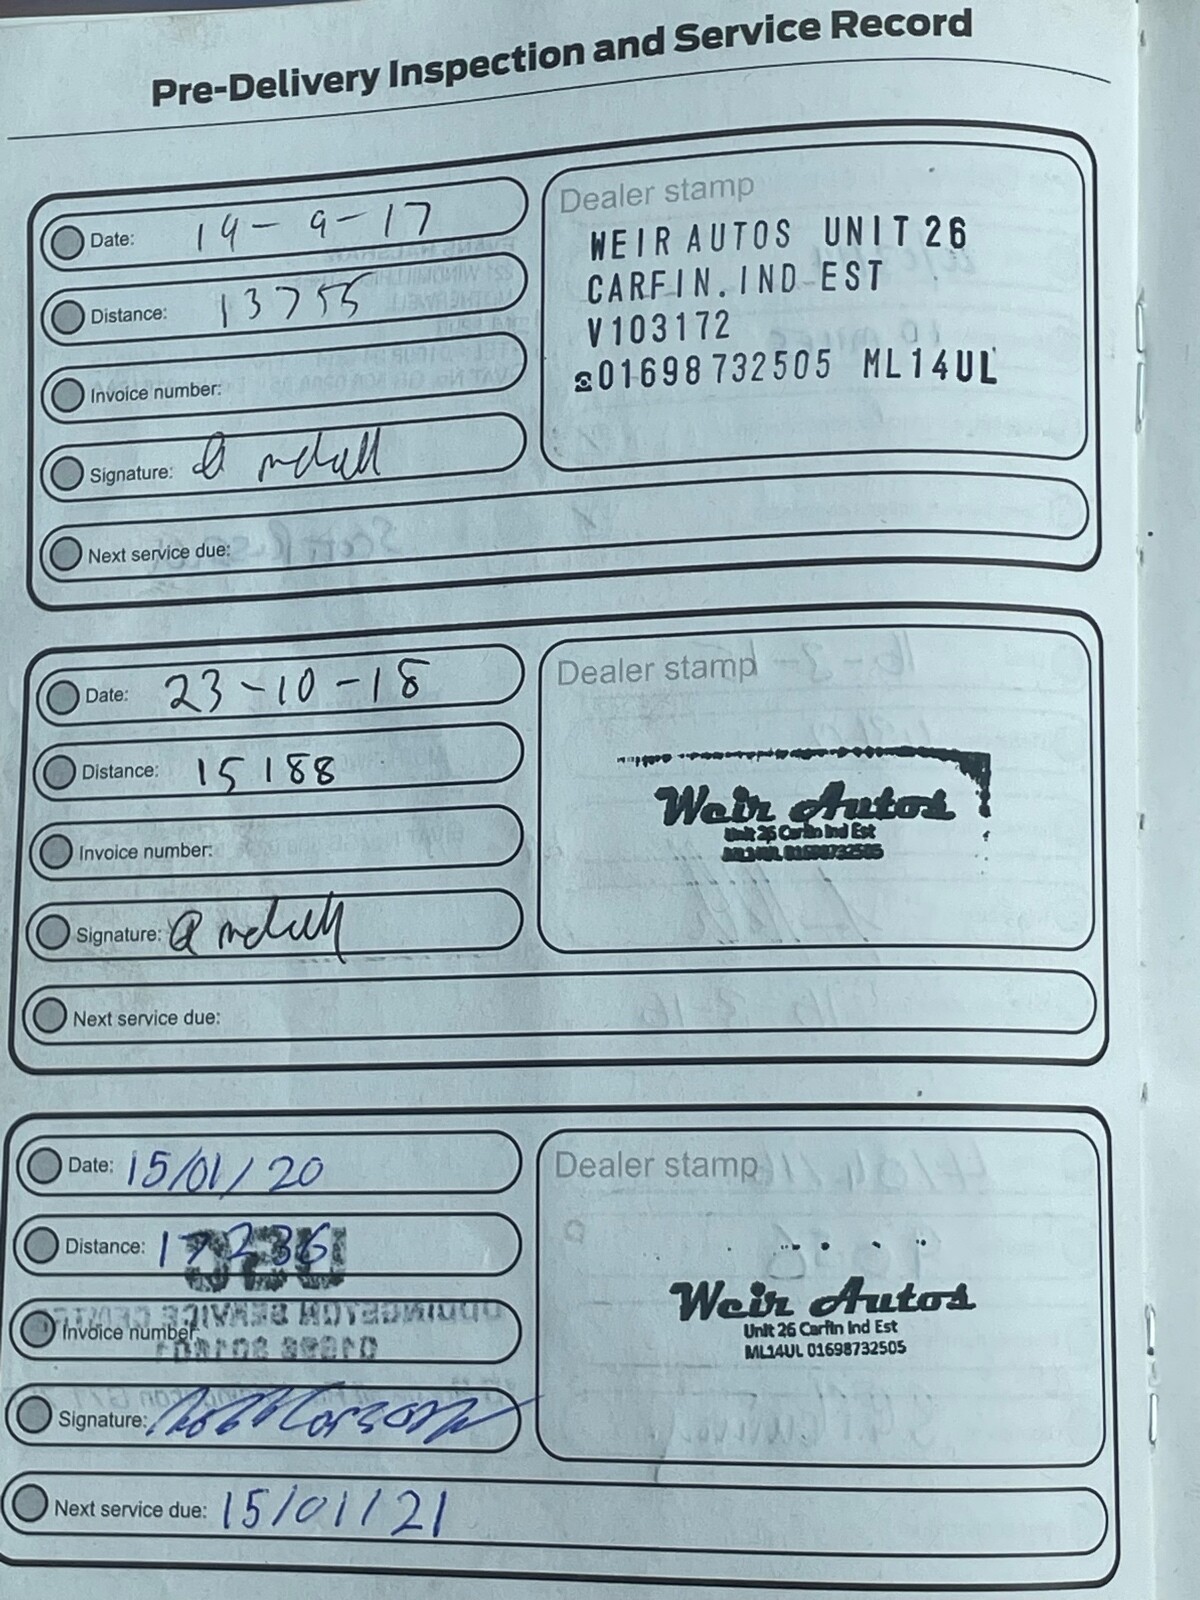 Pre-Delivery Inspection and Service Record
Date: 14-9-17
Distance: 13755
Invoice number:
Signature:
Next service due:
Dealer stamp
WEIR AUTOS UNIT 26
CARFIN. IND EST
V103172
☎01698 732505 ML14UL
Date: 23-10-18
Distance: 15188
Invoice number:
Signature:
Next service due:
Dealer stamp
Weir Autos
Unit 26 Carfin Ind Est
ML14UL 01698732505
Date: 15/01/20
Distance: 17236
Invoice number:
Signature:
Next service due: 15/01/21
Dealer stamp
Weir Autos
Unit 26 Carfin Ind Est
ML14UL 01698732505